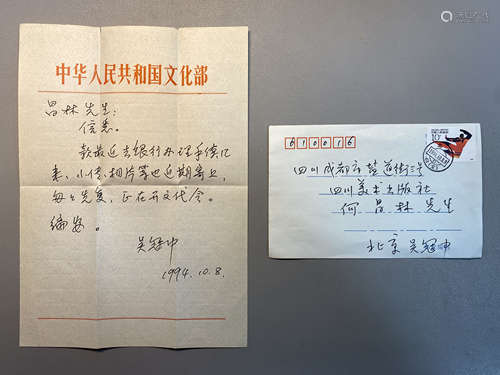 中华人民共和国文化部
昌林先生:
信悉。
款最近去银行办理手续汇
来、小传、相片等也近期寄上,
每匆先复,正在开文代会。
编安。
吴冠中
1994.10.8.
610016
四川成都市盐道街三号
四川美术出版社
何昌林先生
北京吴冠中